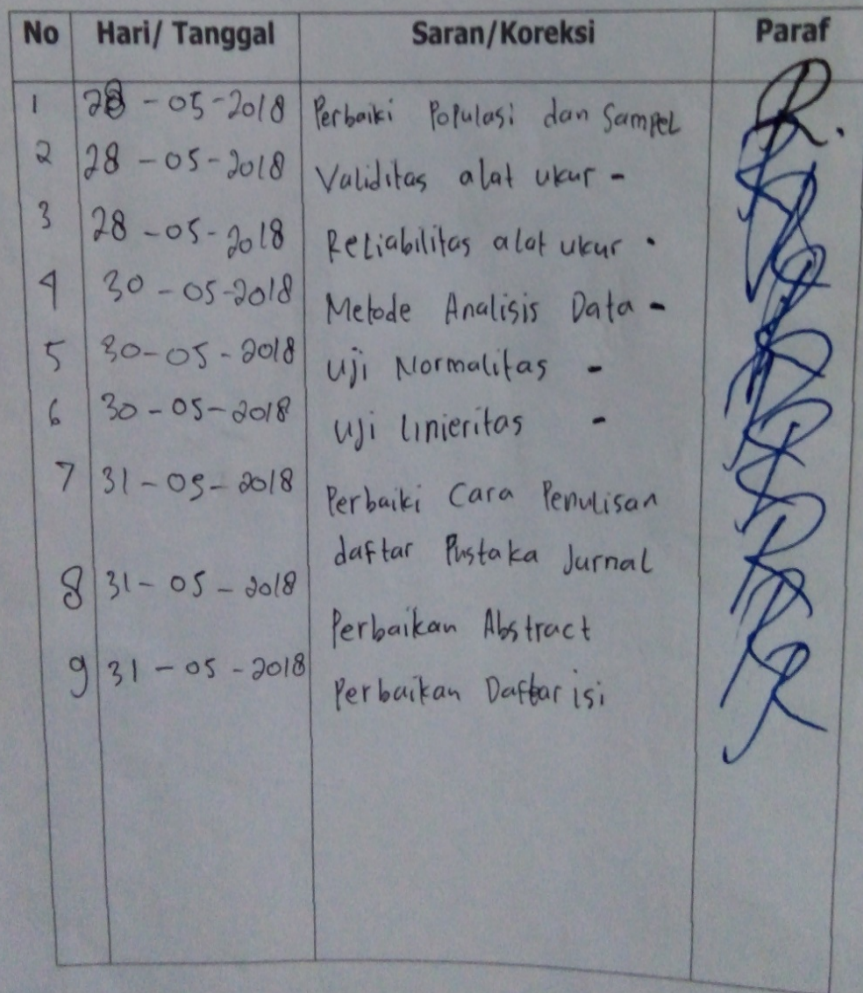 No Hari/ Tanggal Saran/Koreksi Paraf
1 28 -05-2018 Perbaiki Populasi dan Sampel
2 28 -05-2018 Validitas alat ukur -
3 28 -05-2018 Reliabilitas alat ukur .
4 30 -05-2018 Metode Analisis Data -
5 30-05-2018 Uji Normalitas -
6 30-05-2018 Uji Linieritas -
7 31-05-2018 Perbaiki Cara Penulisan
daftar Pustaka Jurnal
8 31-05-2018
Perbaikan Abstract
9 31-05-2018 Perbaikan Daftar isi